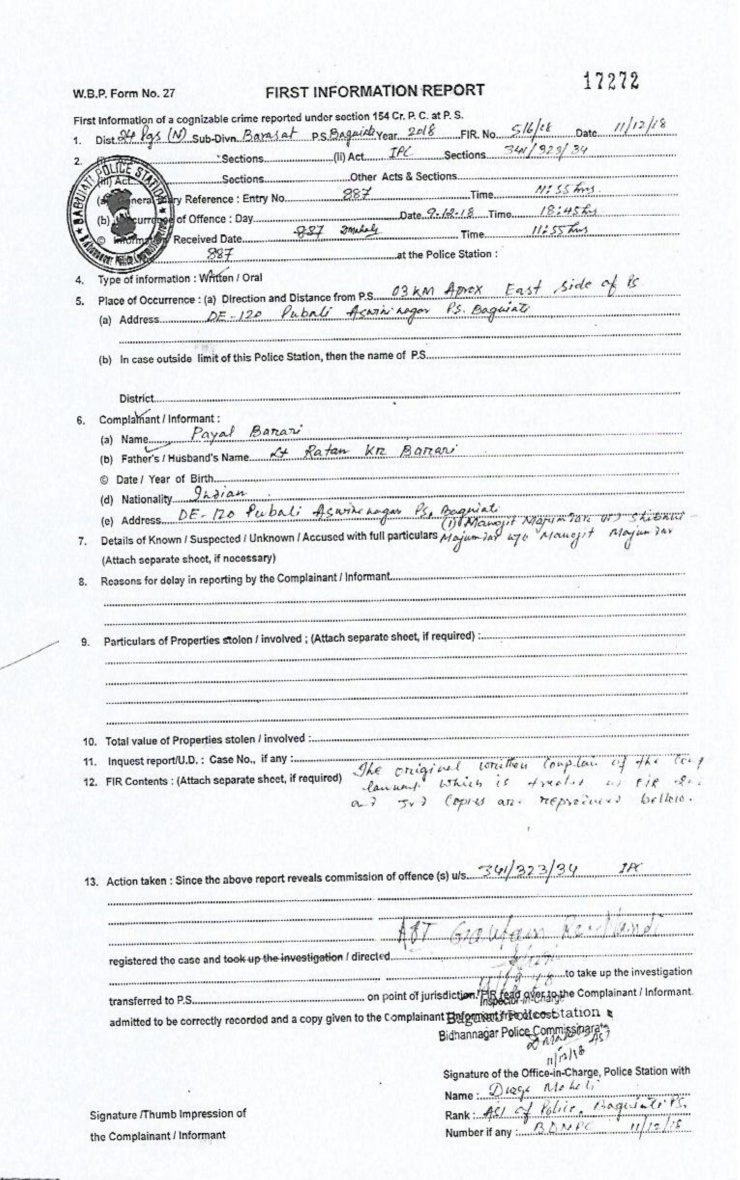 17272
W.B.P. Form No. 27 FIRST INFORMATION REPORT
First Information of a cognizable crime reported under section 154 Cr. P. C. at P. S.
1. Dist. 24 Pgs (N) Sub-Divn. Barasat P.S. Baguiati Year 2018 FIR. No. 516/18 Date 11/12/18
2. Sections (ii) Act IPC Sections 341/323/34
(iii) Act Sections Other Acts & Sections
(a) General Diary Reference : Entry No. 887 Time 11:55 hrs
(b) Occurrence of Offence : Day Date 9.12.18 Time 18:45 hrs
© Information Received Date 887 Time 11:55 hrs
887 at the Police Station :
BAGUIATI POLICE STATION
4. Type of information : Written / Oral
5. Place of Occurrence : (a) Direction and Distance from P.S. 03 KM Aprox East side of PS
(a) Address DE-120 Pubali Aswininagar PS. Baguiati
(b) In case outside limit of this Police Station, then the name of P.S.
District
6. Complainant / Informant :
(a) Name Payal Barrari
(b) Father's / Husband's Name Lt Ratan Kr Barrari
© Date / Year of Birth
(d) Nationality Indian
(e) Address DE-120 Pubali Aswininagar PS, Baguiati
(1) Manojit Majumdar
7. Details of Known / Suspected / Unknown / Accused with full particulars Majumdar w/o Manojit Majumdar
(Attach separate sheet, if necessary)
8. Reasons for delay in reporting by the Complainant / Informant
9. Particulars of Properties stolen / involved ; (Attach separate sheet, if required) :
10. Total value of Properties stolen / involved :
11. Inquest report/U.D. : Case No., if any :
12. FIR Contents : (Attach separate sheet, if required) The original written complain of the comp
lainant which is treated as FIR
and 3rd copies are reproduced bellow.
13. Action taken : Since the above report reveals commission of offence (s) u/s. 341/323/34 IPC
ASI
registered the case and took up the investigation / directed
to take up the investigation
transferred to P.S. on point of jurisdiction. FIR read over to the Complainant / Informant.
Inspector-in-Charge
admitted to be correctly recorded and a copy given to the Complainant / Informant free of cost
Baguiati Police Station
Bidhannagar Police Commissionarate
ASI
11/12/18
Signature of the Office-in-Charge, Police Station with
Name :
Signature /Thumb Impression of
Rank : ASI of Police, Baguiati PS.
the Complainant / Informant
Number if any : BDNPC 11/12/18